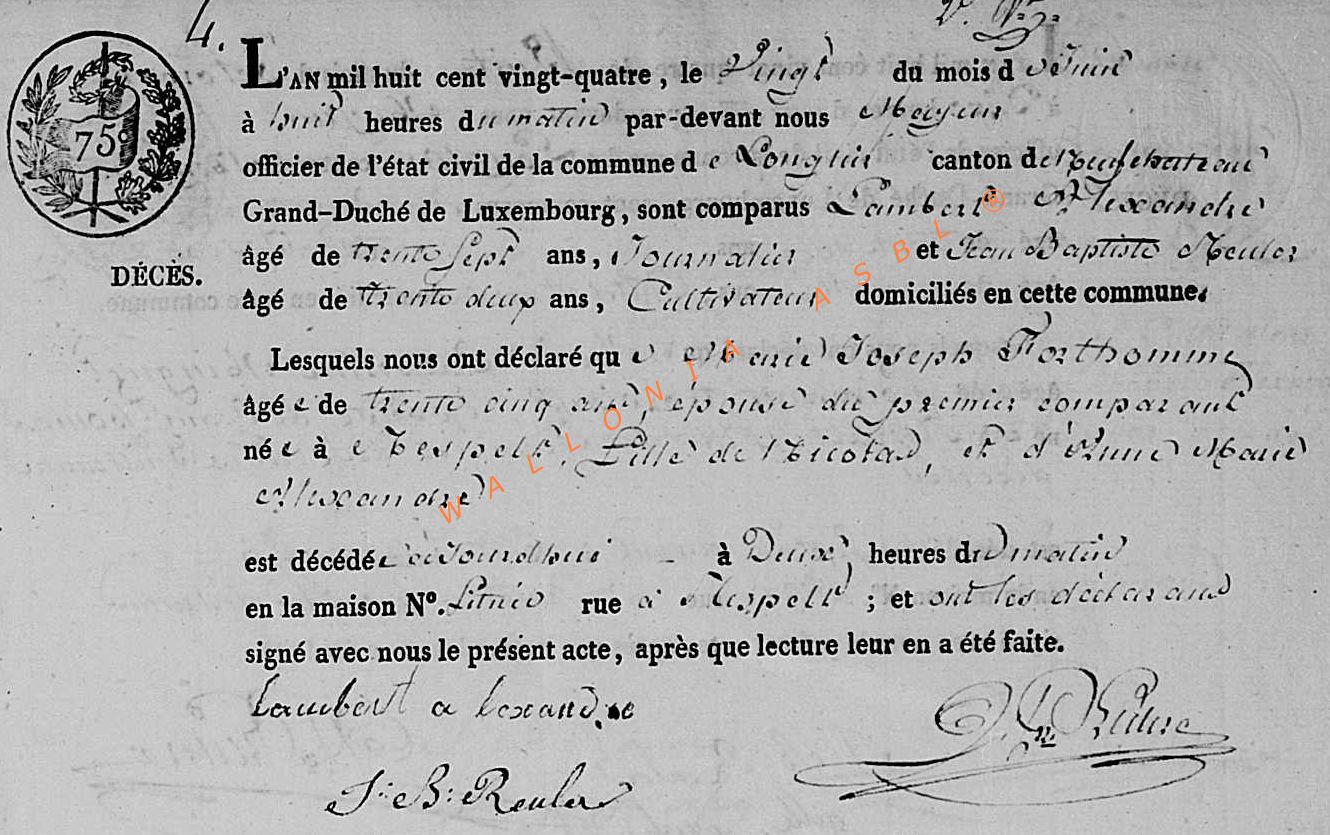 4.
75c
DÉCÈS.
L'AN mil huit cent vingt-quatre, le Vingt du mois de Juin
à huit heures du matin par-devant nous Mayeur
officier de l'état civil de la commune de Longlier canton de Neufchateau
Grand-Duché de Luxembourg, sont comparus Lambert Alexandre
âgé de trente Sept ans, Journalier et Jean Baptiste Reuler
âgé de trente deux ans, Cultivateur domiciliés en cette commune.
Lesquels nous ont déclaré que Marie Joseph Forthomme
âgée de trente cinq ans, épouse du premier comparant
née à Respelt, fille de Nicolas, et d'Anne Marie
Alexandre
est décédée aujourdhui à Deux heures du matin
en la maison N°. située rue à Respelt ; et ont les déclarans
signé avec nous le présent acte, après que lecture leur en a été faite.
Lambert alexandre
J: B: Reuler
WALLONIA ASBL ®